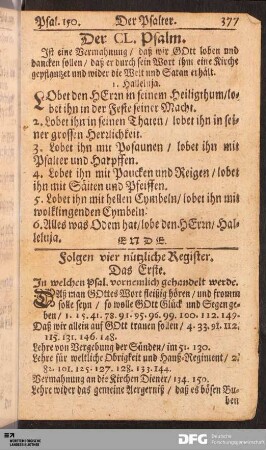 Psal. 150. Der Psalter. 377
Der CL. Psalm.
Ist eine Vermahnung / daß wir GOtt loben und
dancken sollen / daß er durch sein Wort ihm eine Kirche
gepflantzet und wider die Welt und Satan erhält.
1. Halleluja.
LObet den HErrn in seinem Heiligthum/lo-
bet ihn in der Feste seiner Macht.
2. Lobet ihn in seinen Thaten / lobet ihn in sei-
ner grossen Herrlichkeit.
3. Lobet ihn mit Posaunen / lobet ihn mit
Psalter und Harpffen.
4. Lobet ihn mit Paucken und Reigen / lobet
ihn mit Säiten und Pfeiffen.
5. Lobet ihn mit hellen Cymbeln/ lobet ihn mit
wolklingenden Cymbeln.
6. Alles was Odem hat/lobe den HErrn/ Hal-
leluja.
E N D E.
Folgen vier nützliche Register.
Das Erste.
In welchen Psal. vornemlich gehandelt werde.
DAß man GOttes Wort fleißig hören / und fromm
solle seyn / so wolle GOtt Glück und Segen ge-
ben / 1. 15. 41. 78. 91. 95. 96. 99. 100. 112. 149.
Daß wir allein auf GOtt trauen sollen / 4. 33. 91. 112.
115. 131. 146. 148.
Lehre von Vergebung der Sünden/ im 51. 130.
Lehre für weltliche Obrigkeit und Hauß-Regiment / 2.
82. 101. 125. 127. 128. 133. 144.
Vermahnung an die Kirchen Diener/ 134. 150.
Lehre wider das gemeine Aergerniß / daß es bösen Bu-
ben
WÜRTTEMBERGISCHE
LANDESBIBLIOTHEK
DFG Deutsche
Forschungsgemeinschaft